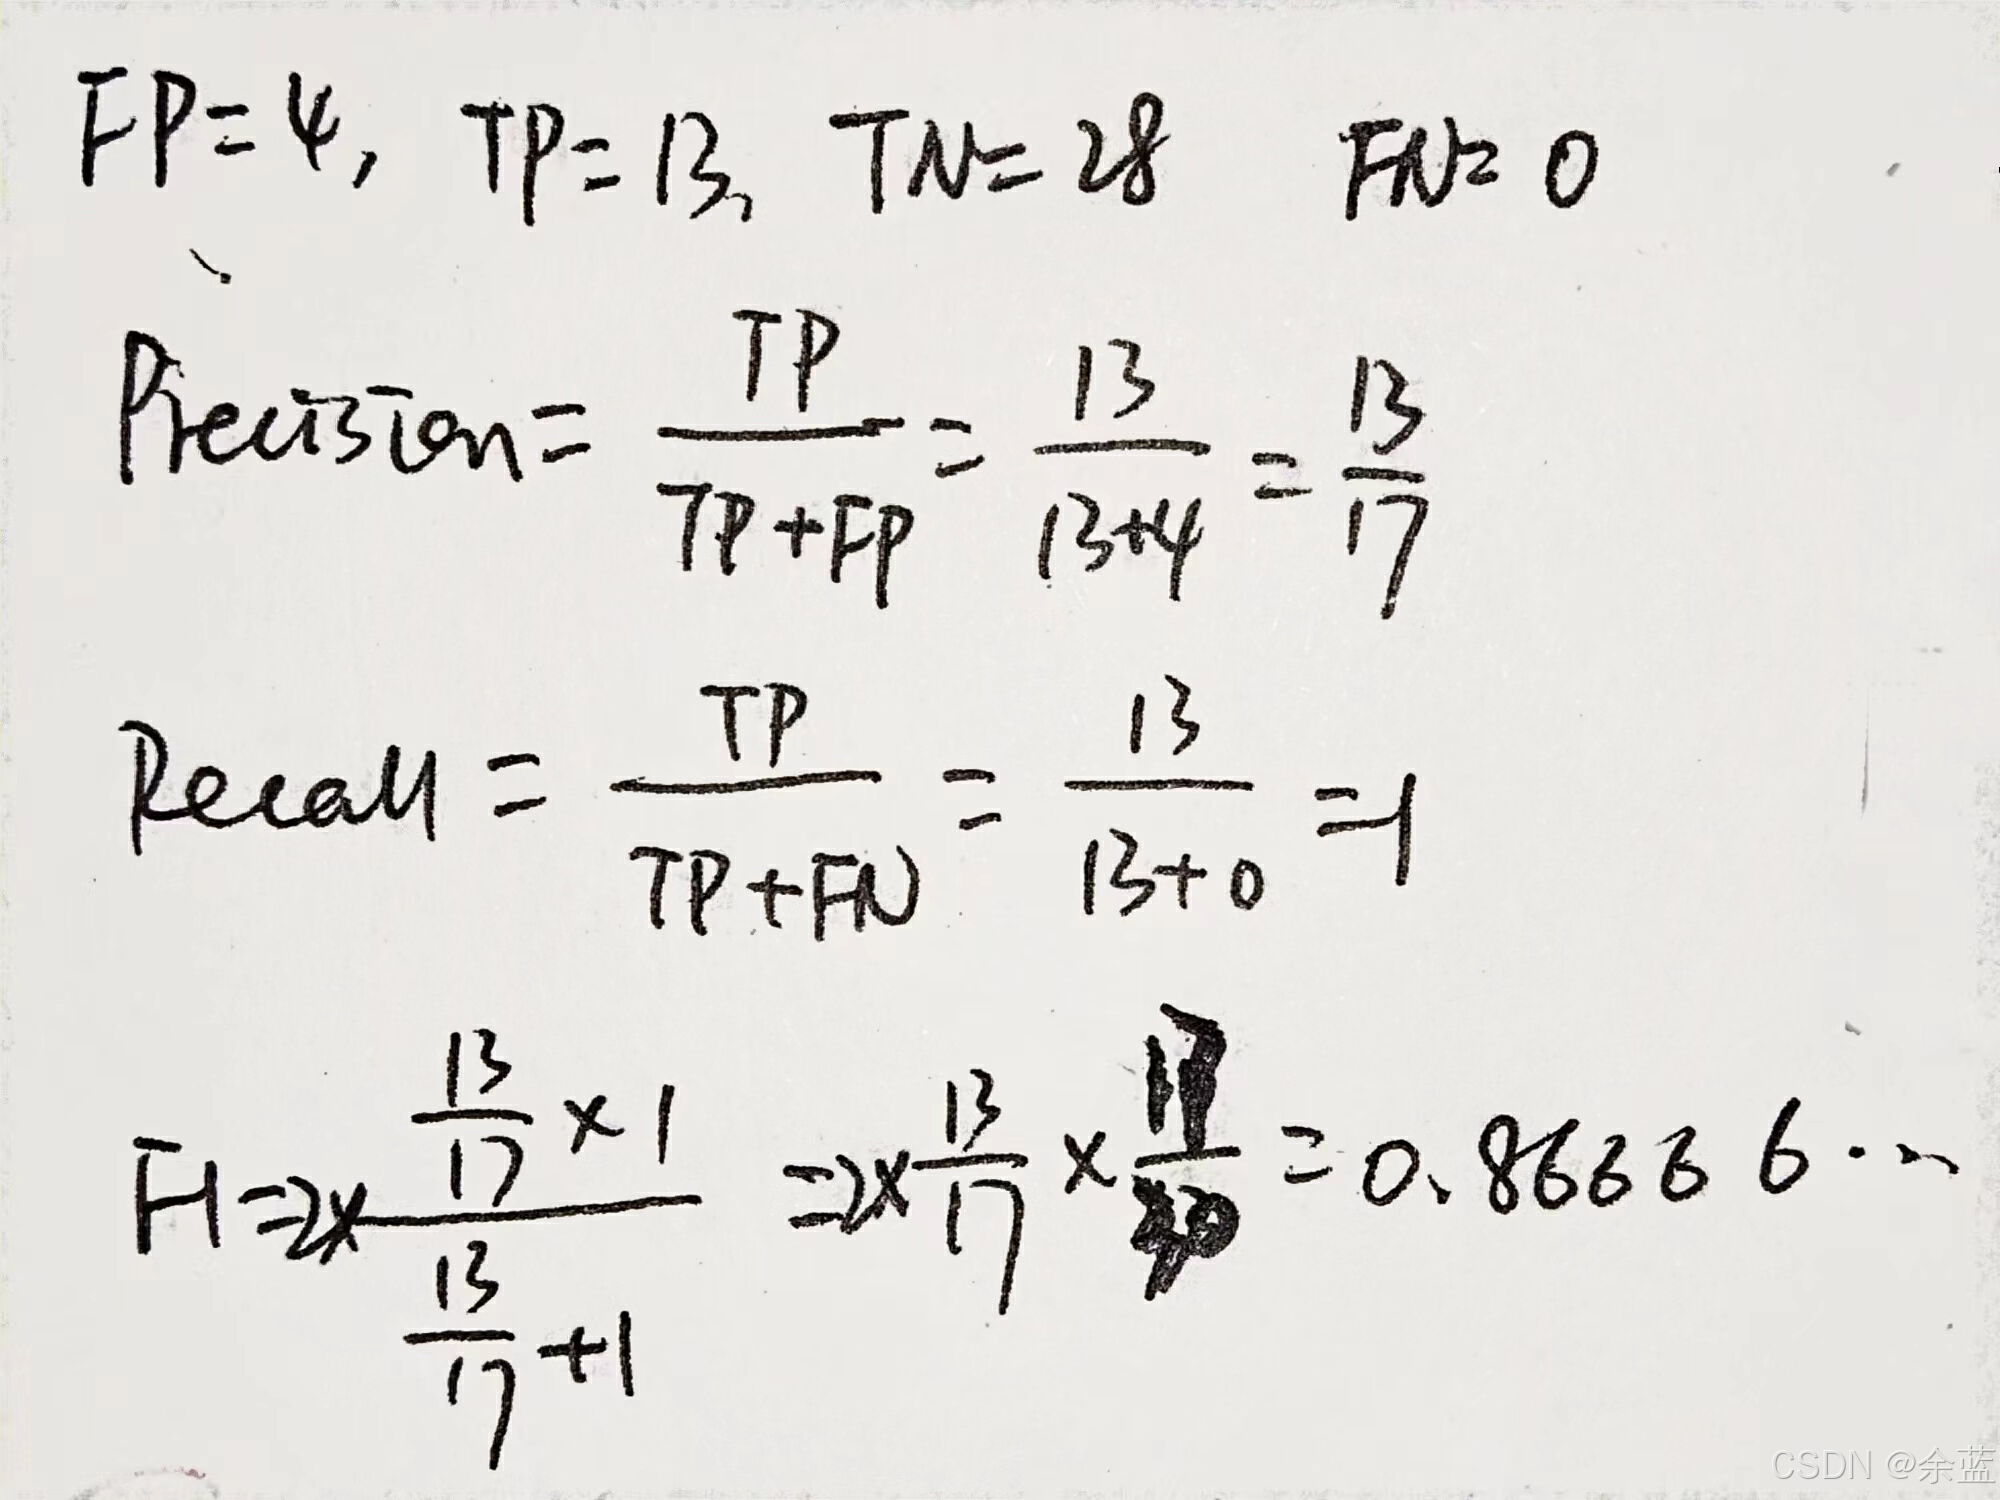 FP=4, TP=13, TN=28 FN=0
Precision = TP/(TP+FP) = 13/(13+4) = 13/17
Recall = TP/(TP+FN) = 13/(13+0) = 1
F1=2× (13/17 × 1)/(13/17 + 1) =2× 13/17 × 17/30 = 0.86666...
CSDN @余蓝